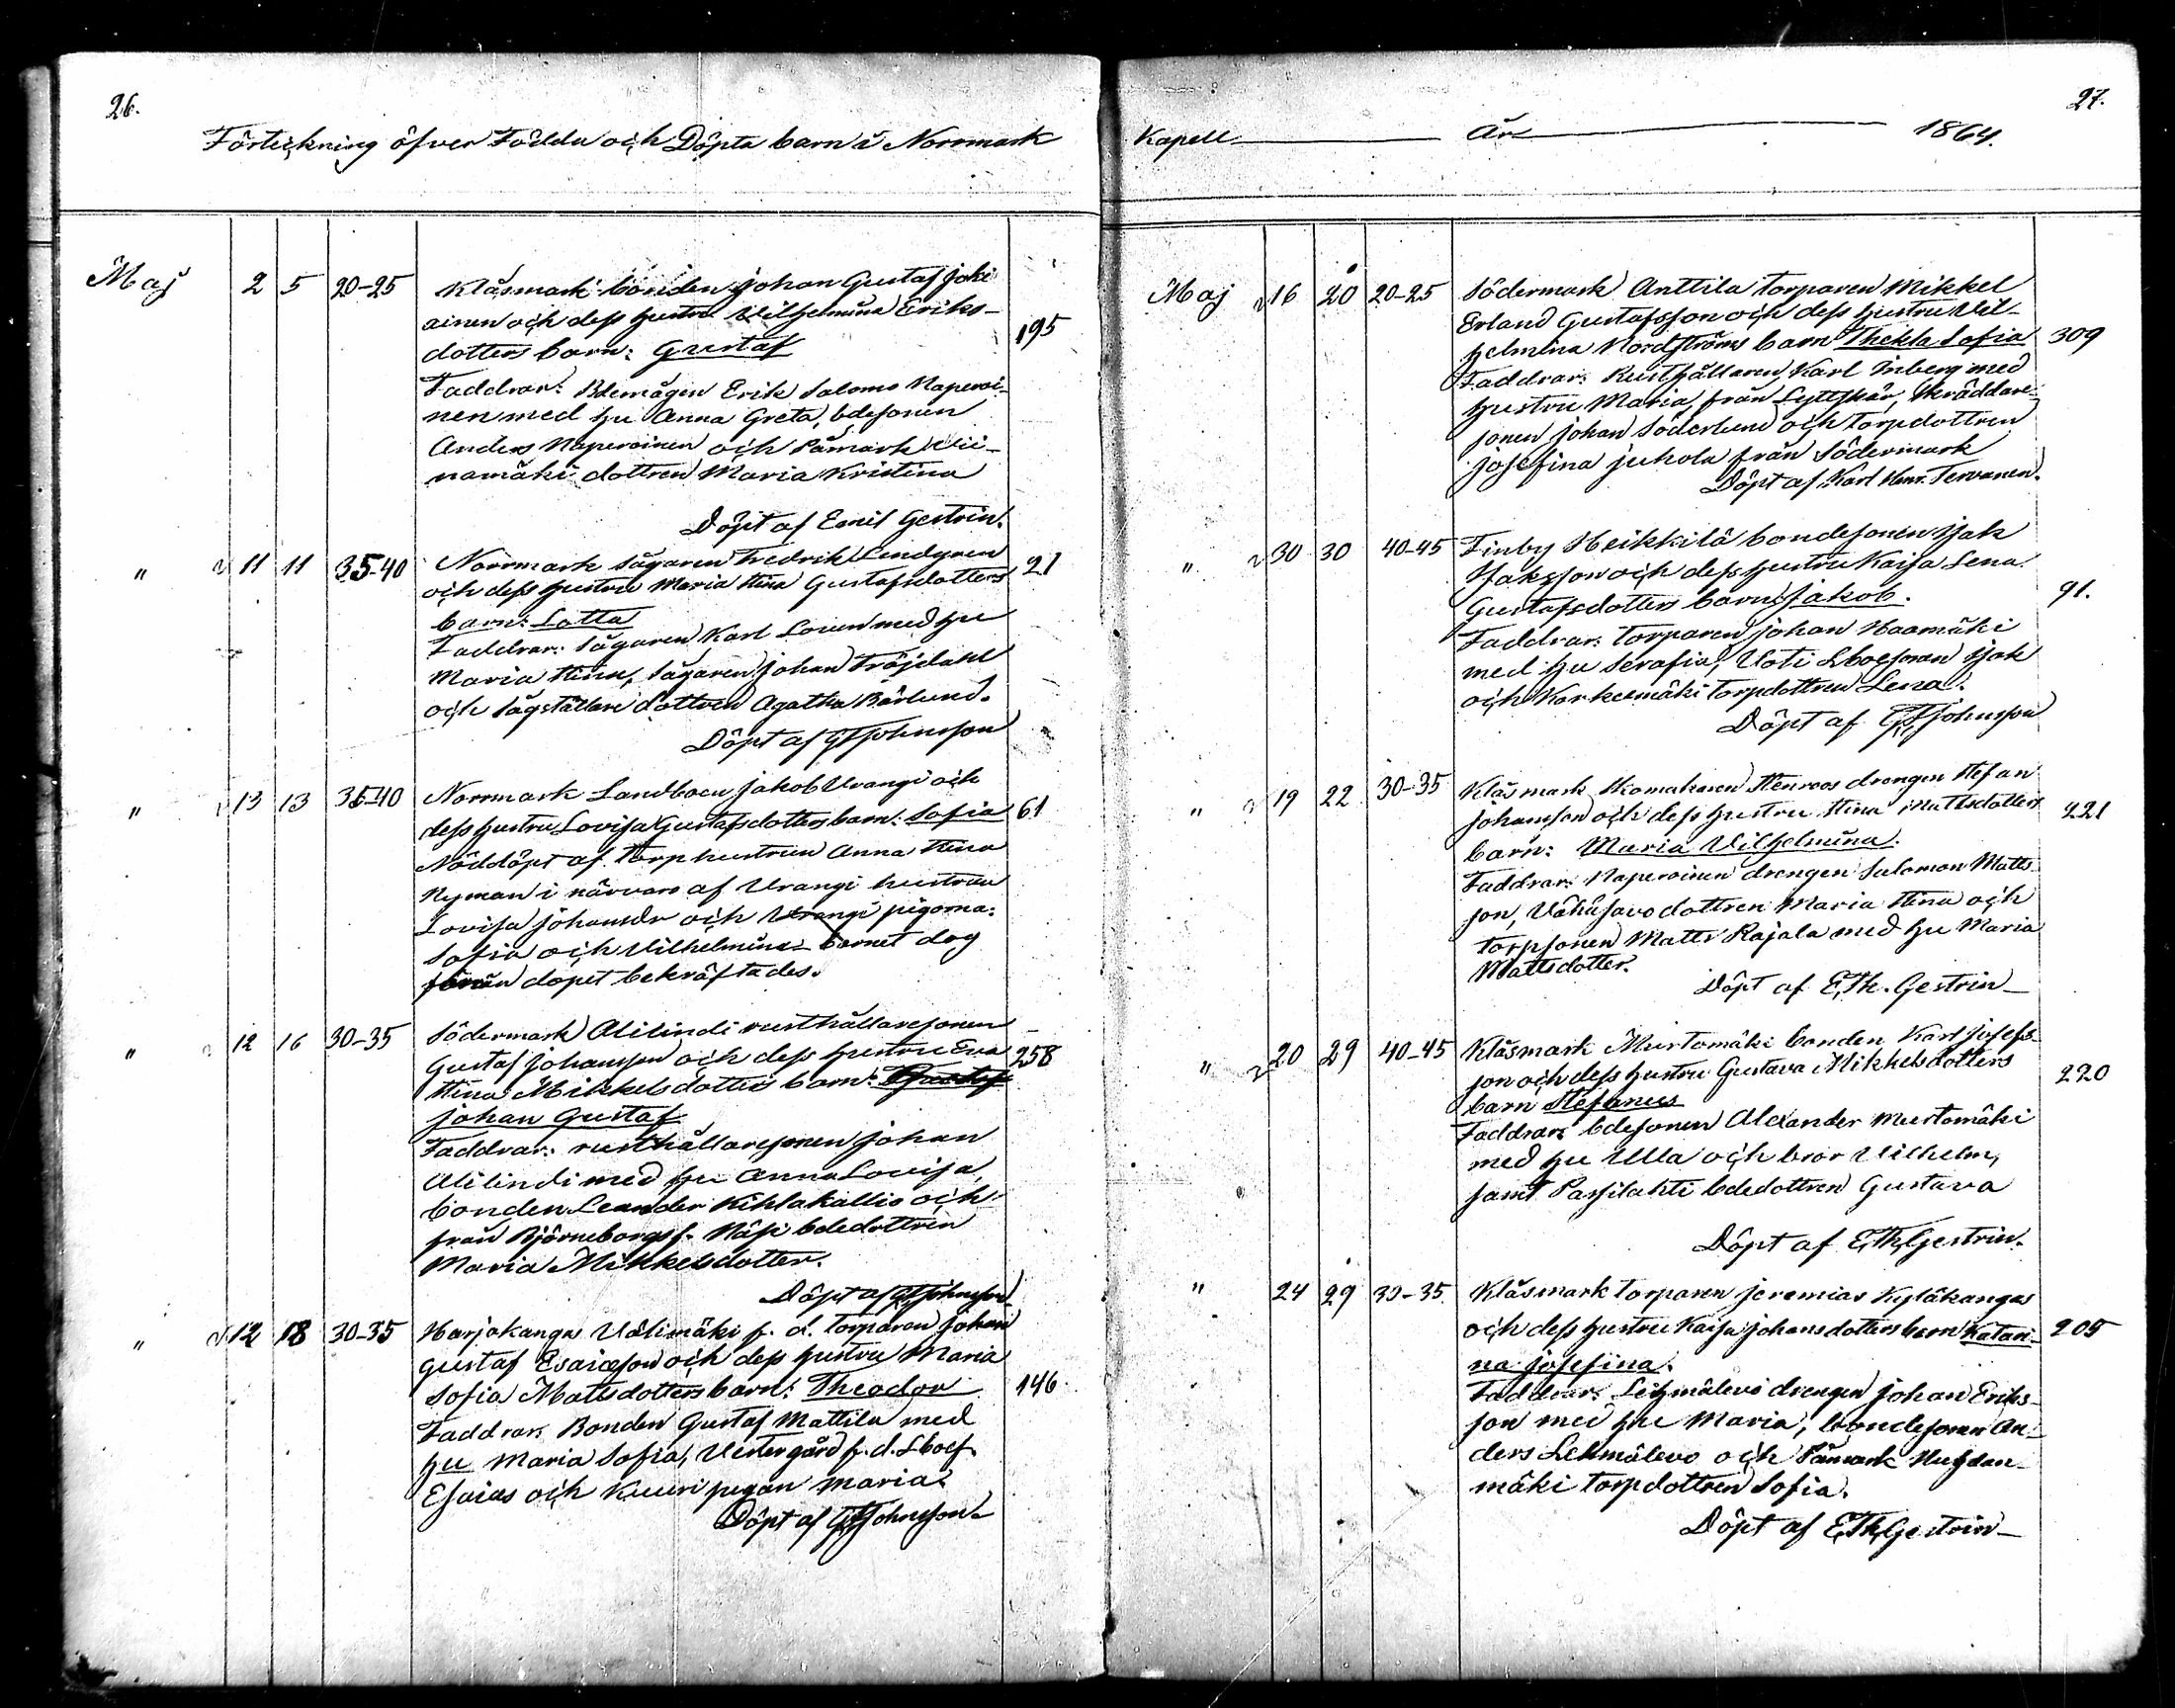 26.
Förteckning öfver Födda och Döpta barn i Norrmark
Maj 2 5 20-25 Klåsmark bonden Johan Gustaf Joki
ainen och dess hustru Vilhelmina Eriks-
dotters barn: Gustaf 195
Faddrar: Bdemågen Erik Salomo Naperoi-
nen med hu Anna Greta, bdesonen
Anders Naperoinen och Påmark
namäki dottren Maria Kristina
Döpt af Emil Gestrin.
" 11 11 35-40 Norrmark Sågaren Fredrik Lindgren 21
och dess hustru Maria Stina Gustafsdotters
barn: Lotta
Faddrar: Sågaren Karl Loren med hu
Maria Stina, Sågaren Johan Fröjdahl
och Sågställare dottren Agatha Bärlund.
Döpt af GFJohnsson
" 13 13 35-40 Norrmark Landboen Jakob Urangi och
dess hustru Lovisa Gustafsdotters barn: Sofia 61
Nöddöpt af Torphustrun Anna Stina
Nyman i närvaro af Urangi hustrun
Lovisa Johansdr och Urangi pigorna:
Sofia och Vilhelmina- barnet dog
förrän dopet bekräftades.
" 12 16 30-35 Södermark Alilindi rusthållaresonen
Gustaf Johansson och dess hustru Eva 258
Stina Mikkelsdotters barn: Gustaf
Johan Gustaf
Faddrar: rusthållaresonen Johan
Alilindi med hu Anna Lovisa,
bonden Leander Kihlakallio och
från Björneborgs f. Näsi bdedottren
Maria Mikkelsdotter.
Döpt af GFJohnsson
" 12 18 30-35 Harjakangas Välimäki f. d. torparen Johan
Gustaf Esaiasson och dess hustru Maria
Sofia Mattsdotters barn: Theodor 146
Faddrar. Bonden Gustaf Mattila med
hu Maria Sofia, Vestergård f. d. Lboef.
Esaias och Kuuri pigan Maria.
Döpt af GFJohnsson
27.
Kapell År 1864.
Maj 16 20 20-25 Södermark Anttila torparen Mikkel
Erland Gustafsson och dess hustru Vil-
helmina Nordströms barn Thekla Sofia 309
Faddrar: Rusthållaren Karl Inberg med
hustru Maria, från Lyttskär, Skräddare-
sonen Johan Söderlund och torpdottren
Josefina Juhola från Södermark
Döpt af Karl Henr. Tervanen.
" 30 30 40-45 Finby Heikkilä bondesonen Isak
Isaksson och dess hustru Kaisa Lena
Gustafsdotters barn: Jakob. 91.
Faddrar: torparen Johan Haamäki
med hu Serafia, Uoti Lboesonen Isak
och Korkeemäki torpdottren Lena.
Döpt af GFJohnsson
" 19 22 30-35 Klåsmark Skomakaren Stenroos drengen Stefan
Johansson och dess hustru Stina Mattsdotters 221
barn: Maria Vilhelmina.
Faddrar: Naperoinen drengen Salomon Matts-
son, Vähäsavo dottren Maria Stina och
torpsonen Matts Rajala med hu Maria
Mattsdotter.
Döpt af E,Th. Gestrin
" 20 29 40-45 Klåsmark Murtomäki bonden Karl Josefs-
son och dess hustru Gustava Mikkelsdotters 220
barn Stefanus
Faddrar: bdesonen Alexander Murtomäki
med hu Ulla och bror Vilhelm,
samt Passilahti bdedottren Gustava
Döpt af E,Th,Gestrin.
" 24 29 30-35. Klåsmark torparen Jeremias Kyläkangas
och dess hustru Kaisa Johansdotters barn Katari- 205
na Josefina.
Faddrar: Lehmälevo drengen Johan Eriks-
son med hu Maria, bondesonen An-
ders Lehmälevo och Påmark
mäki torpdottren Sofia.
Döpt af E,Th,Gestrin